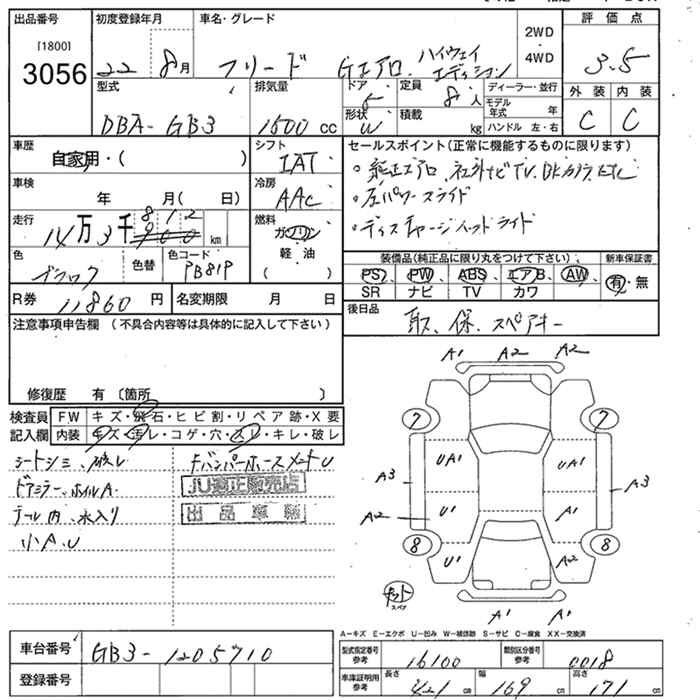 出品番号 初度登録年月 車名・グレード 評価点
[1800]
3056
22 8月 フリード Gエアロ ハイウェイ エディション 2WD・4WD 3.5
型式 排気量 ドア 定員 ディーラー・並行 外装 内装
DBA-GB3 1500 cc 5 8人 モデル年式 年 C C
形状 W 積載 kg ハンドル 左・右
車歴 シフト セールスポイント(正常に機能するものに限ります)
自家用・( ) IAT
・純正エアロ、社外ナビTV、BKカメラ、ETC
車検 冷房 ・左パワースライド
年 月( 日) AAC
・ディスチャージヘッドライト
走行 14万3千812 km 燃料 ガソリン
軽・油
( )
色 色替 色コード 装備品(純正品に限り丸をつけて下さい) 新車保証書
ブラック PB81P PS PW ABS エアB AW 有・無
SR ナビ TV カワ
R券 11860 円 名変期限 月 日 後日品
取、保、スペアキー
注意事項申告欄 (不具合内容等は具体的に記入して下さい)
修復歴 有 〔箇所 〕
検査員 FW キズ・飛石・ヒビ割・リペア跡・X要
記入欄 内装 キズ・汚レ・コゲ・穴・スレ・キレ・破レ
シートシミ、破レ FバンパーホースメントU
ドアミラー、ホイルA JU適正販売店
テール内、水入り 出品車輌
小A.U
A1 A2 A2
7 7
UA1 A1
A3 A3
A2 U1 A1
8 8
U1 A2
スペア
A1 A1
A−キズ E−エクボ U−凹み W−補修跡 S−サビ C−腐食 XX−交換済
車台番号 GB3-1205710 型式指定番号 参考 16100 類別区分番号 参考 0018
登録番号 車庫証明用 参考 長さ 421 cm 幅 169 cm 高さ 171 cm